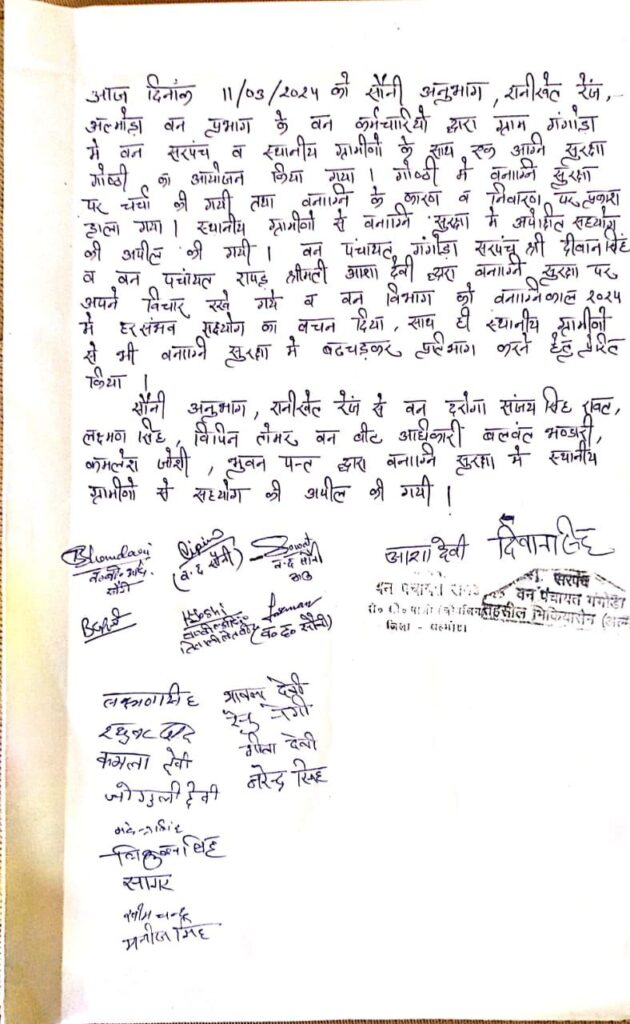 आज दिनांक 11/03/2025 को सौनी अनुभाग, रानीखेत रेंज,
अल्मोड़ा वन प्रभाग के वन कर्मचारियो द्वारा ग्राम गंगोडा
मे वन सरपंच व स्थानीय ग्रामीणो के साथ एक अग्नि सुरक्षा
गोष्ठी का आयोजन किया गया । गोष्ठी मे वनाग्नि सुरक्षा
पर चर्चा की गयी तथा वनाग्नि के कारण व निवारण पर प्रकाश
डाला गया । स्थानीय ग्रामीणो से वनाग्नि सुरक्षा मे अपेक्षित सहयोग
की अपील की गयी । वन पंचायत गंगोडा सरपंच श्री दीवान सिंह
व वन पंचायत रापड़ श्रीमती आशा देवी द्वारा वनाग्नि सुरक्षा पर
अपने विचार रखे गये व वन विभाग को वनाग्निकाल 2025
मे हरसंभव सहयोग का वचन दिया, साथ ही स्थानीय ग्रामीणो
से भी वनाग्नि सुरक्षा मे बढचड़कर प्रतिभाग करने हेतु प्रेरित
किया ।
सौनी अनुभाग, रानीखेत रेंज से वन दरोगा संजय सिंह रावत,
लक्ष्मण सिंह, विपिन तोमर वन बीट अधिकारी बलवंत भण्डारी,
कमलेश जोशी, भुवन पन्त द्वारा वनाग्नि सुरक्षा मे स्थानीय
ग्रामीणो से सहयोग की अपील की गयी ।
Bhandari Vipin Rawat आशा देवी दिवान सिंह
(व.द सौनी) व.द सौनी
सौनी
वन पंचायत सरपंच
वन पंचायत गंगोडा
तहसील भिकियासैन
जिला - अल्मोड़ा
HJoshi Laxman
(व.द. सौनी)
लक्ष्मण सिंह
रेनु नेगी
कमला देवी गीता देवी
जोगुली देवी नरेन्द्र सिंह
सागर
मनोज सिंह